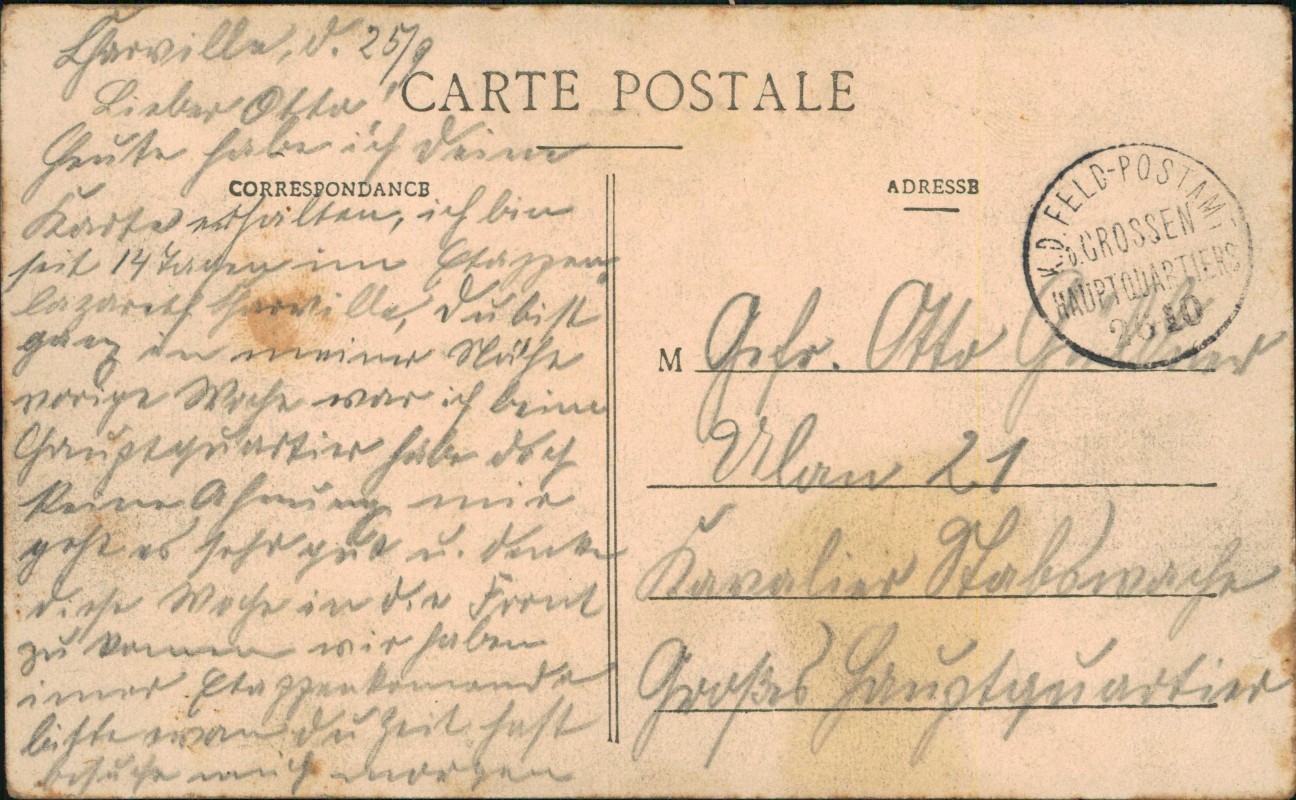 Charville, d. 25/9
Lieber Otto!
CARTE POSTALE
Heute habe ich deine
CORRESPONDANCE
Karte erhalten, ich bin
seit 14 Tagen im Etappen
lazareth Charville, du bist
ganz in meiner Nähe
vorige Woche war ich beim
Hauptquartier habe doch
keine Ahnung mir
geht es sehr gut u. denke
diese Woche in die Front
zu kommen wir haben
imer Etappenkomando
bitte wan du Zeit hast
besuche mich morgen
ADRESSE
K.D. FELD-POSTAMT
D. GROSSEN
HAUPTQUARTIERS
10
M Gefr. Otto
Ulan 21
Kavalier Stabswache
Großes Hauptquartier